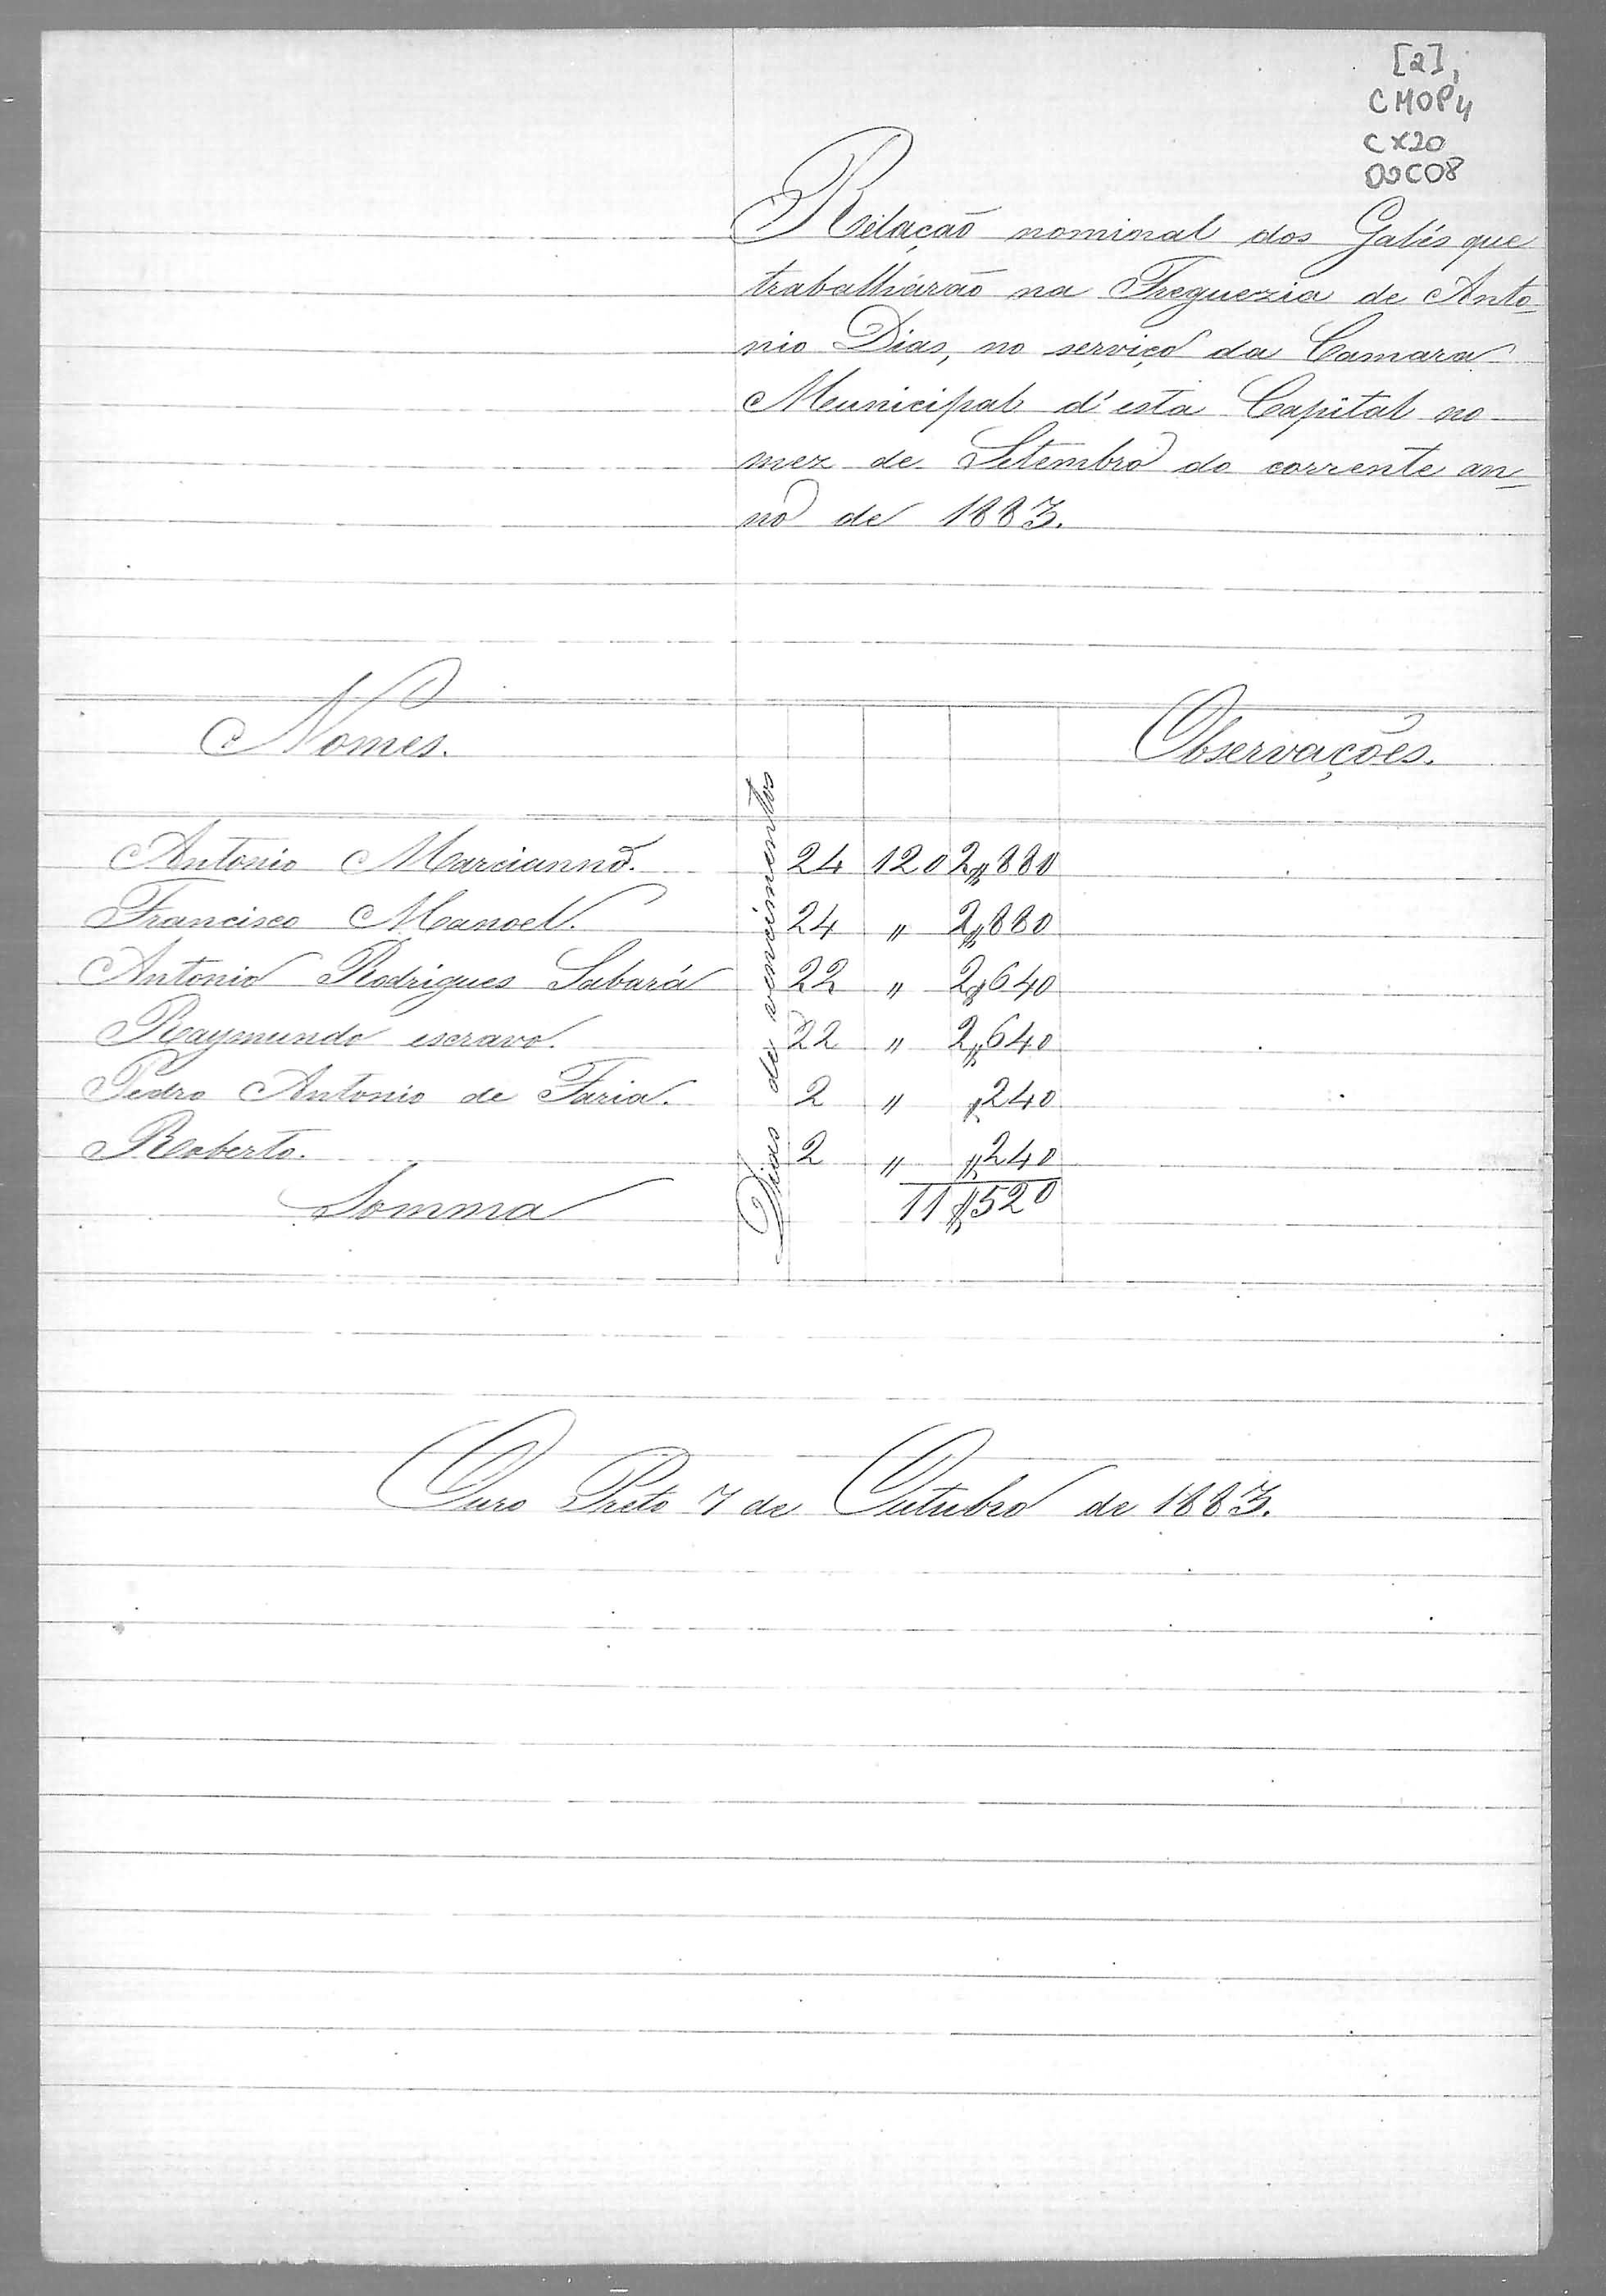 [2],
CMOP4
CX20
DOC08
Relação nominal dos Galés que
trabalhárão na Freguezia de Anto=
nio Dias, no serviço da Camara
Municipal d'esta Capital no
mez de Setembro do corrente an=
no de 1883.
Nomes. Dias de vencimentos Observações.
Antonio Marcianno. 24 120 2$880
Francisco Manoel. 24 " 2$880
Antonio Rodrigues Sabará 22 " 2$640
Raymundo escravo. 22 " 2$640
Pedro Antonio de Faria. 2 " $240
Roberto. 2 " $240
Somma 11$520
Ouro Preto 7 de Outubro de 1883.